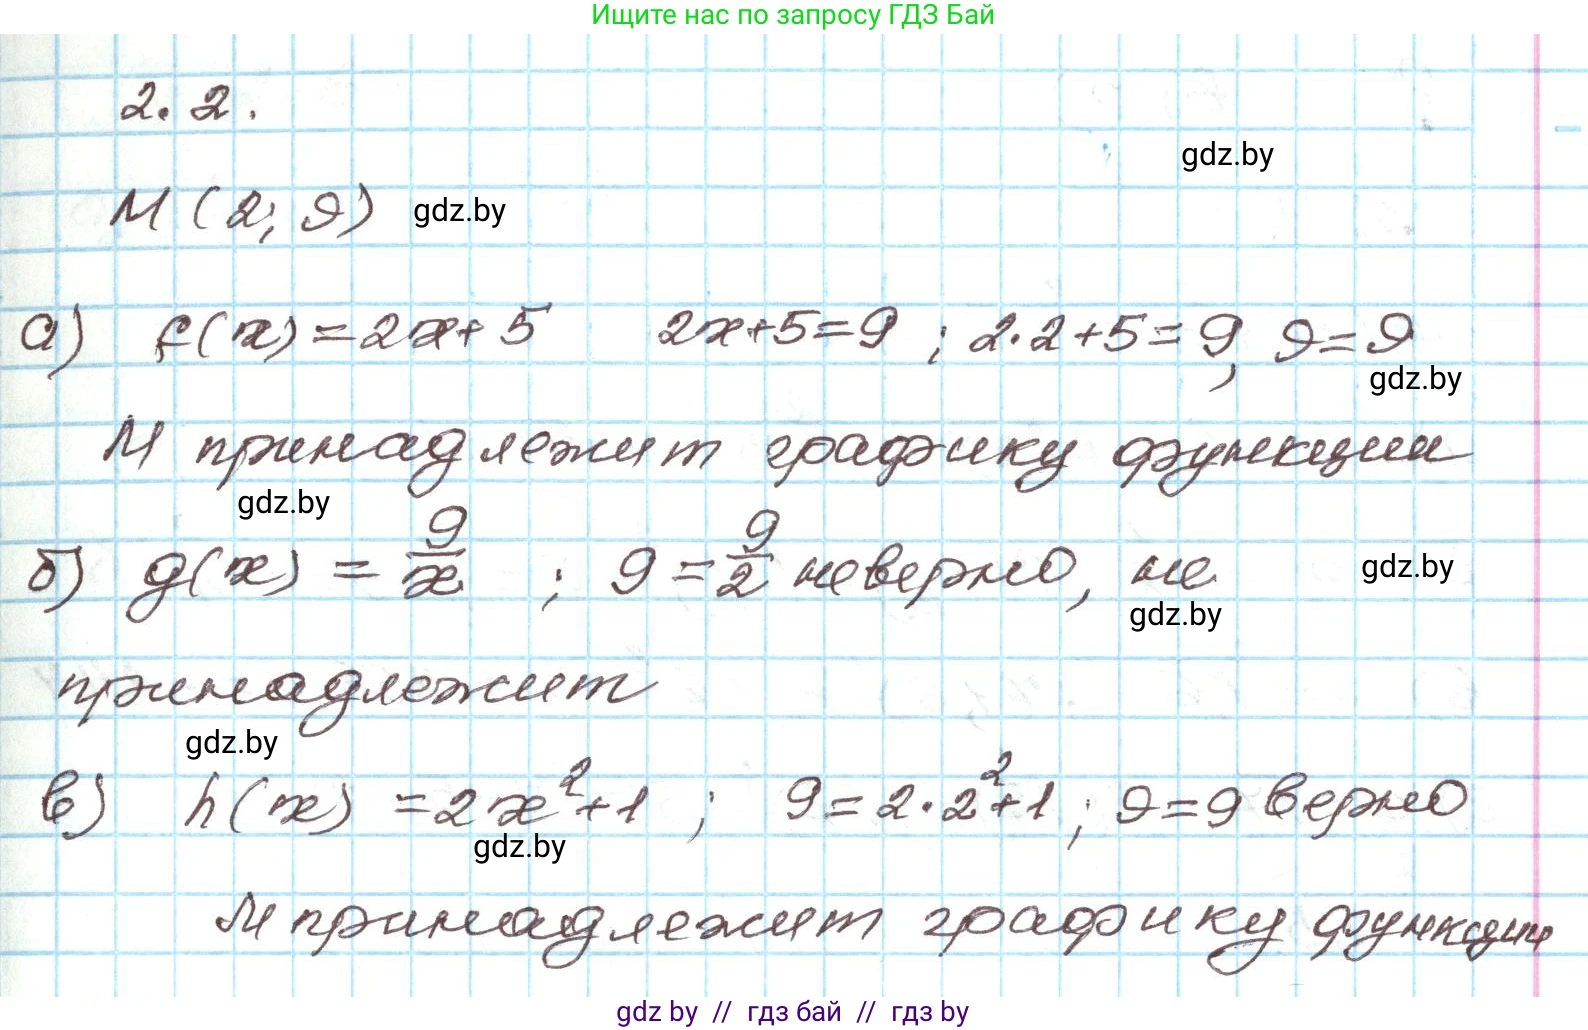 Ищите нас по запросу ГДЗ Бай
2.2.
gdz.by
М (2; 9) gdz.by
а) f(x)=2x+5 2x+5=9 ; 2·2+5=9, 9=9
gdz.by
М принадлежит графику функции
gdz.by
б) g(x) = 9/x ; 9 = 9/2 неверно, не gdz.by
gdz.by
принадлежит
gdz.by
в) h(x) =2x²+1 ; 9=2·2²+1; 9=9 верно
gdz.by
М принадлежит графику функции
gdz by // гдз бай // гдз by